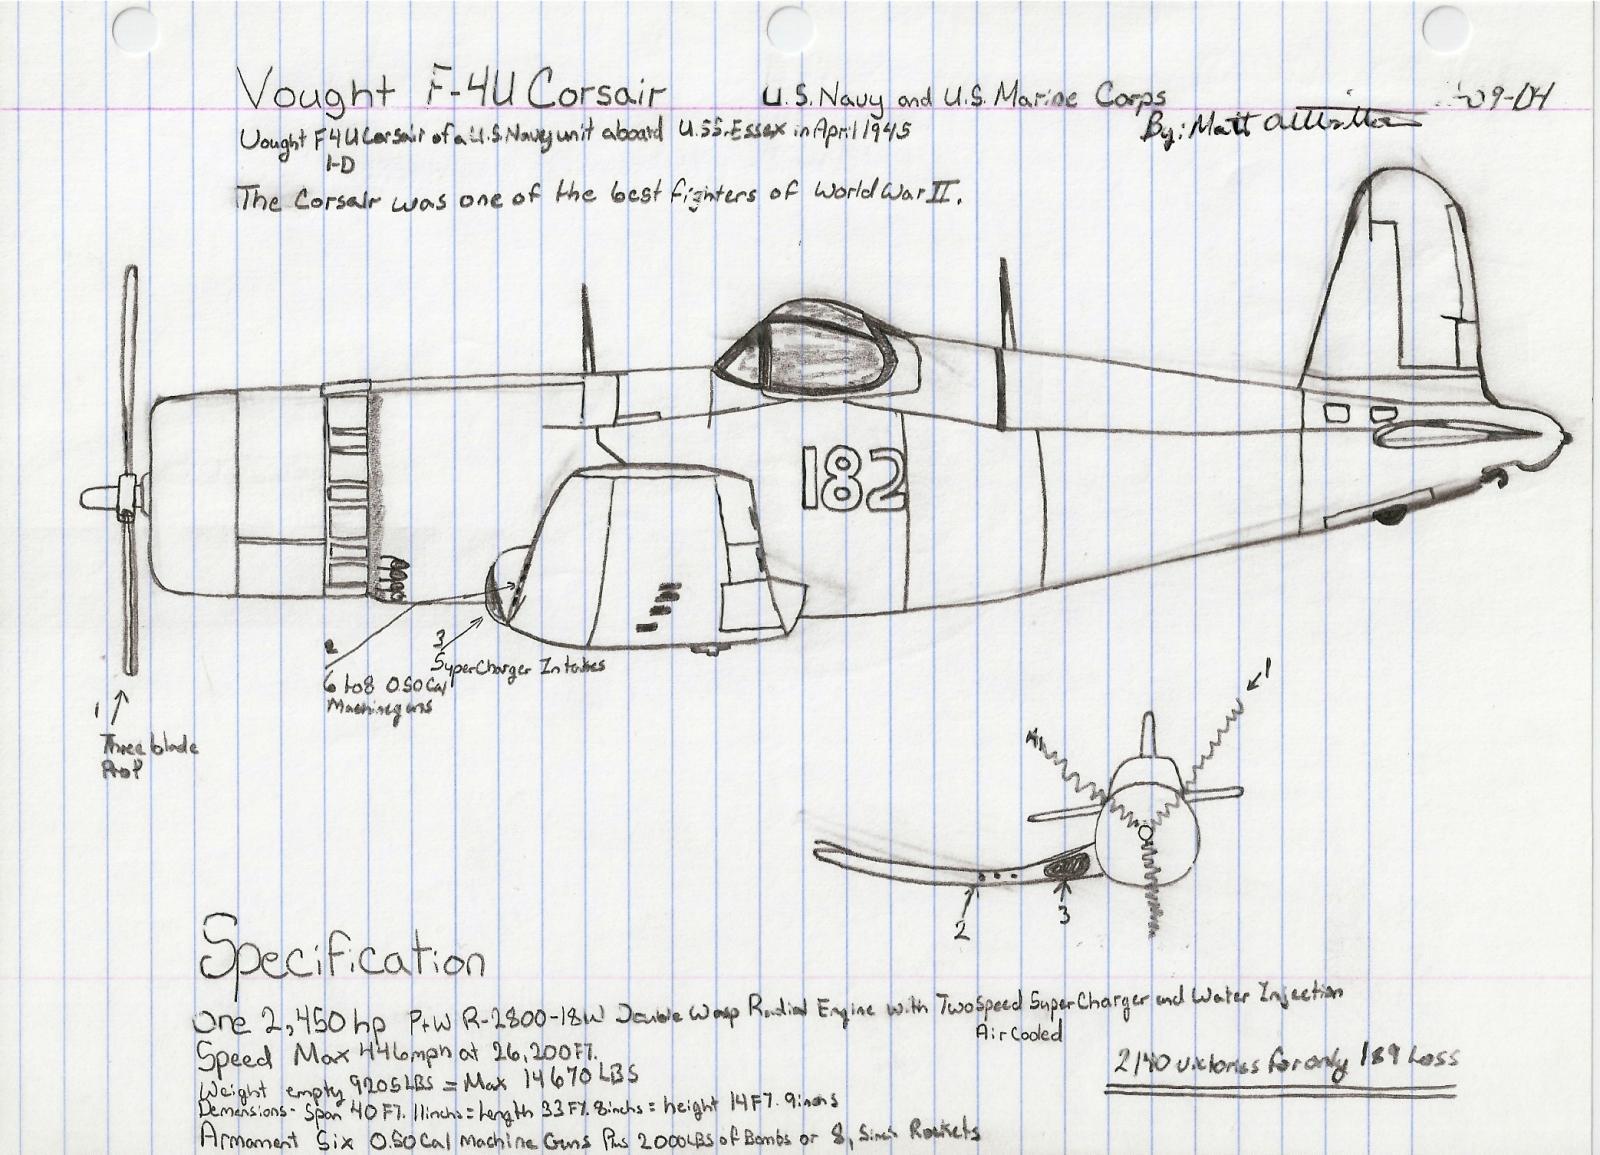 Vought F-4U Corsair U.S. Navy and U.S. Marine Corps
09-04
By: Matt
Vought F4U Corsair of a U.S. Navy unit aboard U.S.S. Essex in April 1945
1-D
The Corsair was one of the best fighters of World War II.
182
2
3
SuperCharger Intakes
6 to 8 0.50 Cal
Machineguns
1
Three blade
Prop
1
2
3
Specification
One 2,450 hp P+W R-2800-18W Double Wasp Radial Engine with Two Speed SuperCharger and Water Injection
Air Cooled
Speed Max 446mph at 26,200 FT.
Weight empty 9205 LBS = Max 14670 LBS
Demensions- Span 40 FT. 11inchs = Length 33 FT. 8inchs = height 14 FT. 9inchs
Armament Six 0.50 Cal Machine Guns Plus 2000LBS of Bombs or 8, 5inch Rockets
2140 victories for only 189 Loss